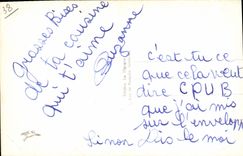 38
Grosses Bises
de ta cousine
qui t'aime
Suzanne
c'est tu ce
que cela veut
dire CPUB
que j'ai mis
sur l'envelopp
Sinon dis-le moi